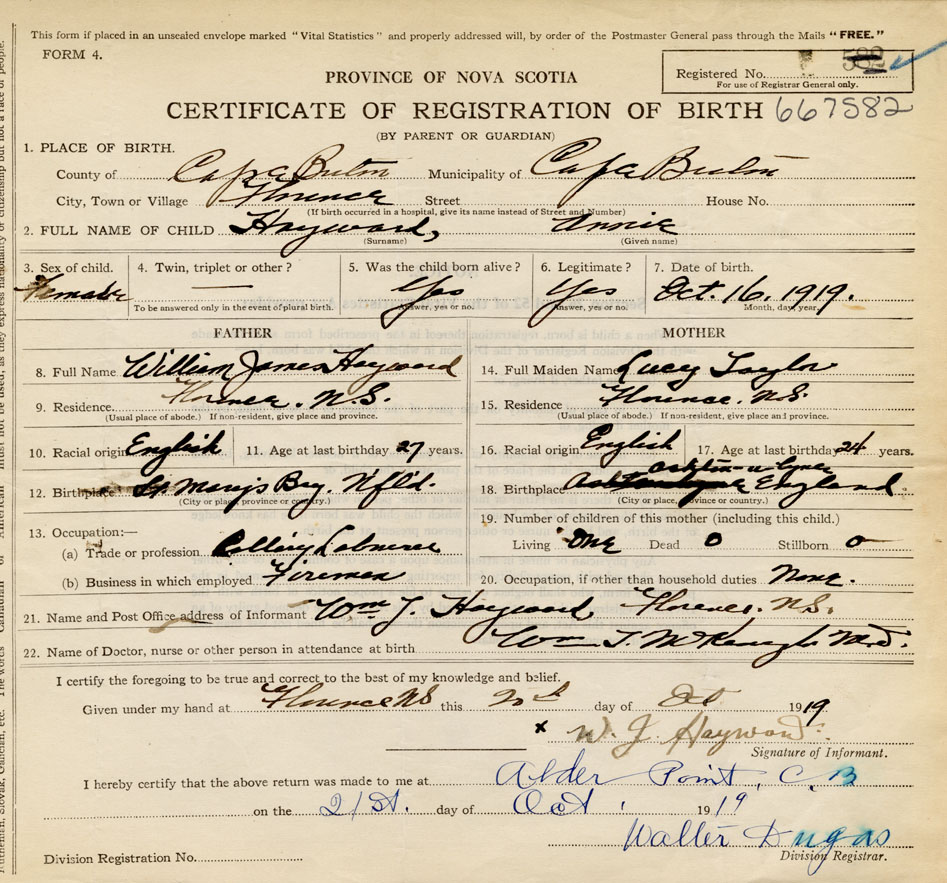 This form if placed in an unsealed envelope marked "Vital Statistics" and properly addressed will, by order of the Postmaster General pass through the Mails "FREE."
FORM 4.
Registered No. 582
For use of Registrar General only.
PROVINCE OF NOVA SCOTIA
CERTIFICATE OF REGISTRATION OF BIRTH 667582
(BY PARENT OR GUARDIAN)
1. PLACE OF BIRTH.
County of Cape Breton Municipality of Cape Breton
City, Town or Village Florence Street House No.
(If birth occurred in a hospital, give its name instead of Street and Number)
2. FULL NAME OF CHILD Hayward, Annie
(Surname) (Given name)
3. Sex of child. 4. Twin, triplet or other? 5. Was the child born alive? 6. Legitimate? 7. Date of birth.
Female — Yes Yes Oct. 16, 1919.
To be answered only in the event of plural birth. Answer, yes or no. Answer, yes or no. Month, day, year.
FATHER MOTHER
8. Full Name William James Hayward 14. Full Maiden Name Lucey Taylor
9. Residence Florence. N.S. 15. Residence Florence. N.S.
(Usual place of abode.) If non-resident, give place and province. (Usual place of abode.) If non-resident, give place and province.
10. Racial origin English 11. Age at last birthday 27 years. 16. Racial origin English 17. Age at last birthday 24 years.
12. Birthplace St. Mary's Bay. N'f'ld. 18. Birthplace England
(City or place, province or country.) (City or place, province or country.)
13. Occupation:— 19. Number of children of this mother (including this child.)
(a) Trade or profession Colliery Labourer Living One Dead 0 Stillborn 0
(b) Business in which employed Firemen 20. Occupation, if other than household duties None.
21. Name and Post Office address of Informant Wm J. Hayward, Florence. N.S.
22. Name of Doctor, nurse or other person in attendance at birth Wm T. McKeough M.D.
I certify the foregoing to be true and correct to the best of my knowledge and belief.
Given under my hand at Florence NS this 20th day of Oct 1919
x W. J. Hayward
Signature of Informant.
I hereby certify that the above return was made to me at Alder Point, C. B
on the 21st. day of Oct. 1919
Walter Dugas
Division Registrar.
Division Registration No.